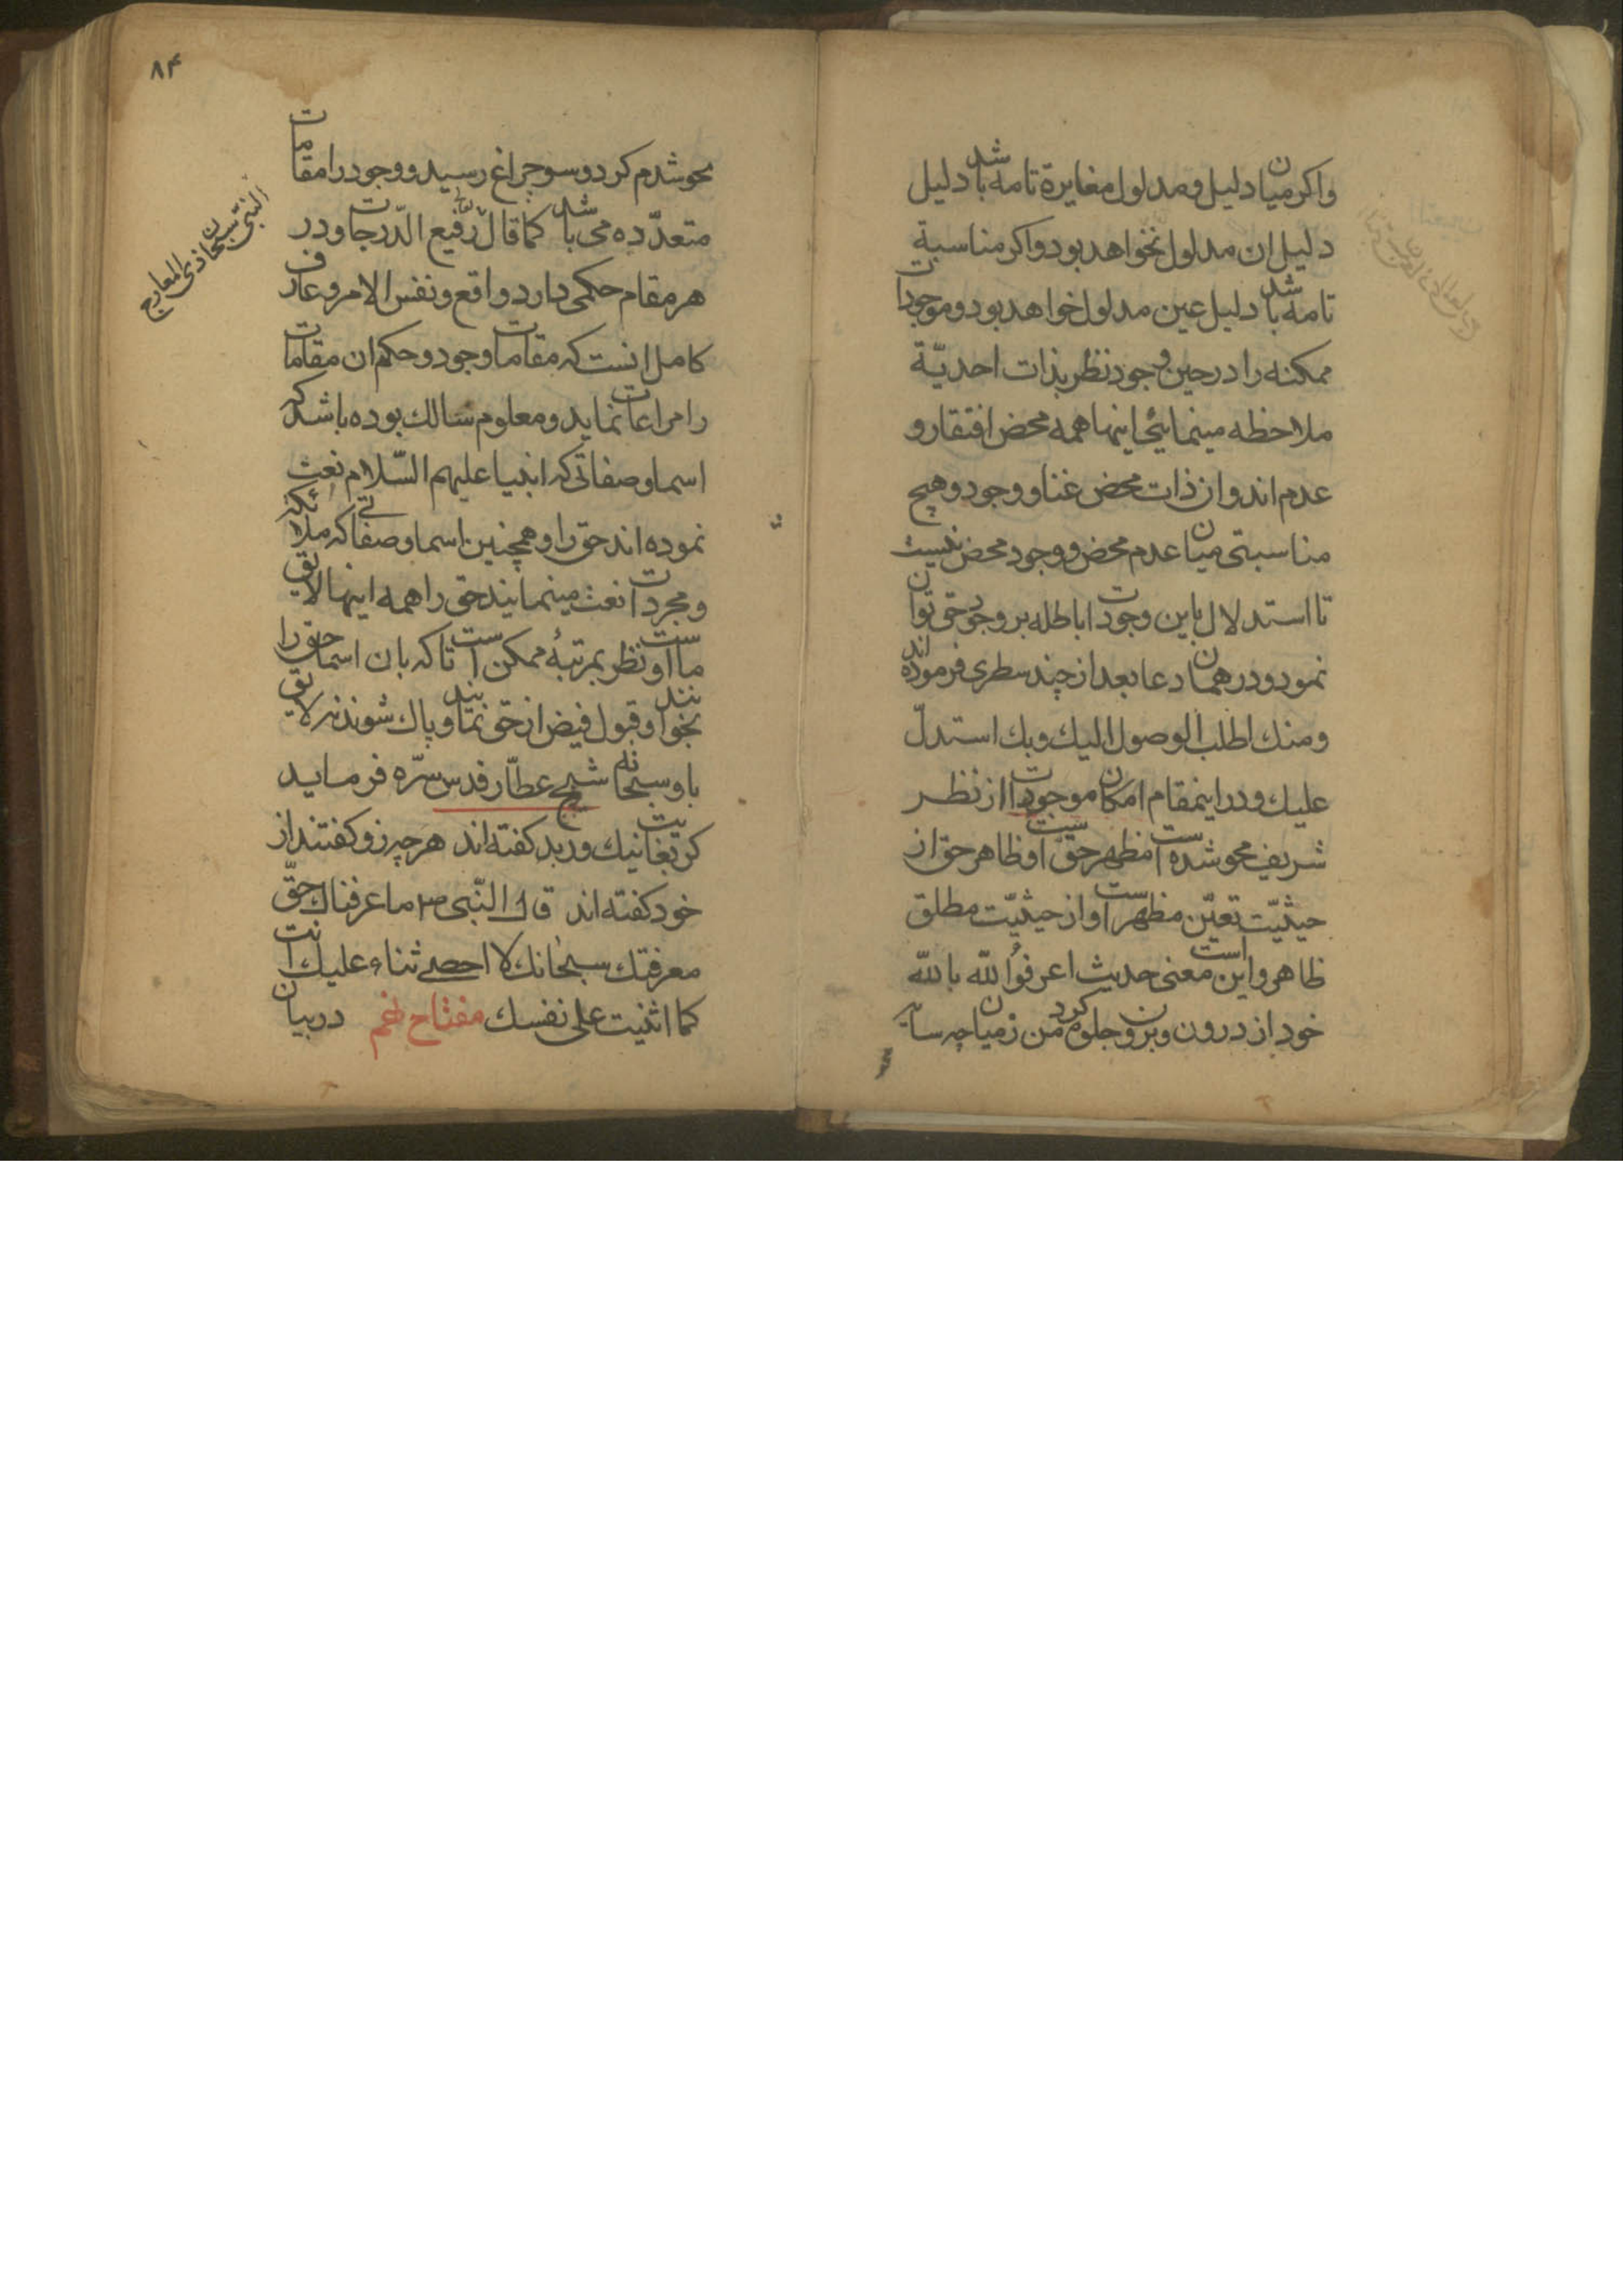 واکر میان دلیل و مدلول مغایرة تامه باشد دلیل
دلیل ان مدلول نخواهد بود واکر مناسبة
تامه باشد دلیل عین مدلول خواهد بود و موجودات
ممکنه را در حین وجود نظر بذات احدیّة
ملاحظه مینمائی اینها همه محض افتقار و
عدم اند و ان ذات محض غنا و وجود و هیچ
مناسبتی میان عدم محض و وجود محض نیست
تا استدلال باین وجودات باطله بر وجود حق توان
نمود و در همان دعا بعد از چند سطری فرموده اند
ومنك اطلب الوصول الیك وبك استدلّ
علیك و در اینمقام امکان موجودات از نظر
شریف محو شده است مظهر حق اوست و ظاهر حق از
حیثیّت تعیّن مظهر است و از حیثیّت مطلق
ظاهر و این است معنی حدیث اعرفوا الله بالله
خود از درون و برون جلوه کرد من زمیان چه سایه
محو شدم کرد و سو چراغ رسید و وجود را مقامات
متعدّده می باشد کما قال رفیع الدّرجات و در
هر مقام حکمی دارد واقع و نفس الامر و عارف
کامل انست که مقامات وجود و حکم ان مقامات
را مراعات نماید و معلوم سالك بوده باشد که
اسما و صفاتی که انبیا علیهم السّلام نعت
نموده اند حق را و همچنین اسما و صفاتے که ملائکه
و مجردات نعت مینمایند حق را همه اینها لایق
ما است و نظر بمرتبهٔ ممکن است تا که بان اسما حق را
بخوانند و قبول فیض از حق نمایند و پاك شوند نه لایق
باو سبحانه شیخ عطّار قدس سرّه فرماید
کر بغایت نیك ور بد کفته اند هرچه زو کفتند از
خود کفته اند قال النّبی ص ما عرفناك حقّ
معرفتك سبحانك لا احصے ثناء علیك انت
کما اثنیت علی نفسك مفتاح نهم در بیان
۸۴